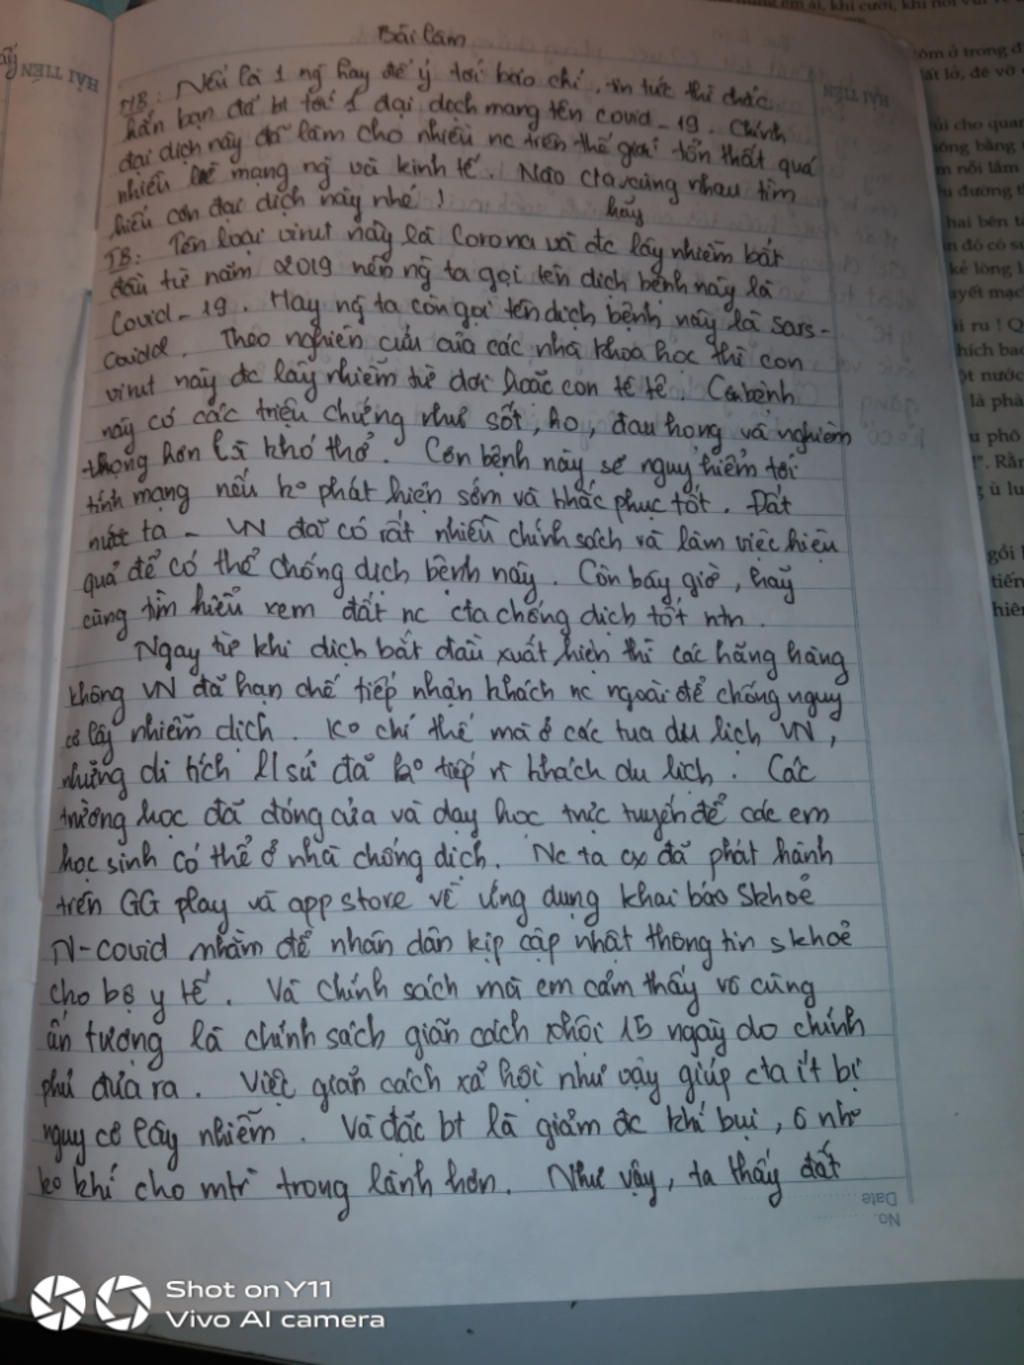 Bài làm
MB: Nếu là 1 ng hay để ý tới báo chí, tin tức thì chắc
hẳn bạn đã bt tới 1 đại dịch mang tên covid-19. Chính
đại dịch này đã làm cho nhiều nc trên thế giới tổn thất quá
nhiều mạng ng và kinh tế. Nào cta cùng nhau tìm
hãy
hiểu cơn đại dịch này nhé!
TB: Tên loại virut này là Corona và đc lây nhiễm bắt
đầu từ năm 2019 nên ng ta gọi tên dịch bệnh này là
Covid-19. Hay ng ta còn gọi tên dịch bệnh này là sars-
Theo nghiên cứu của các nhà khoa học thì con
virut này đc lây nhiễm từ dơi hoặc con tê tê. Cơn bệnh
này có các triệu chứng như sốt, ho, đau họng và nghiêm
trọng hơn là khó thở. Cơn bệnh này sẽ nguy hiểm tới
tính mạng nếu ko phát hiện sớm và khắc phục tốt. Đất
nước ta - VN đã có rất nhiều chính sách và làm việc hiệu
quả để có thể chống dịch bệnh này. Còn bây giờ, hãy
cùng tìm hiểu xem đất nc cta chống dịch tốt ntn.
Ngay từ khi dịch bắt đầu xuất hiện thì các hãng hàng
không VN đã hạn chế tiếp nhận khách nc ngoài để chống nguy
cơ lây nhiễm dịch. Ko chỉ thế mà ở các tua du lịch VN,
những di tích lsử đã ko tiếp khách du lịch. Các
trường học đã đóng cửa và dạy học trực tuyến để các em
học sinh có thể ở nhà chống dịch. Nc ta cx đã phát hành
trên GG play và app store về ứng dụng khai báo skhoẻ
N-covid nhằm để nhân dân kịp cập nhật thông tin skhoẻ
cho bộ y tế. Và chính sách mà em cảm thấy vô cùng
ấn tượng là chính sách giãn cách 15 ngày do chính
phủ đưa ra. Việc giãn cách xã hội như vậy giúp cta ít bị
nguy cơ lây nhiễm. Và đặc bt là giảm đc khí bụi, ô nh
ko khí cho mtr trong lành hơn. Như vậy, ta thấy đất
No.
Date
HẢI TIẾN
HẢI TIẾN
Shot on Y11
Vivo AI camera